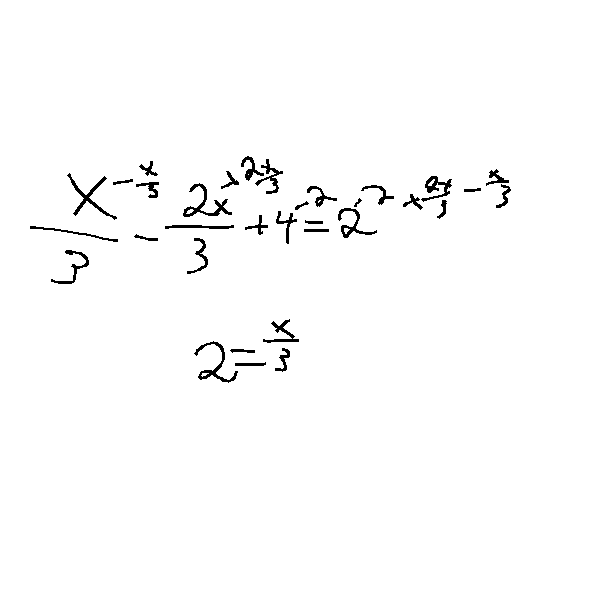 x/3 - x/3 - 2x/3 + 2x/3 + 4 - 2 = 2 - 2 + 2x/3 - x/3
2 = x/3